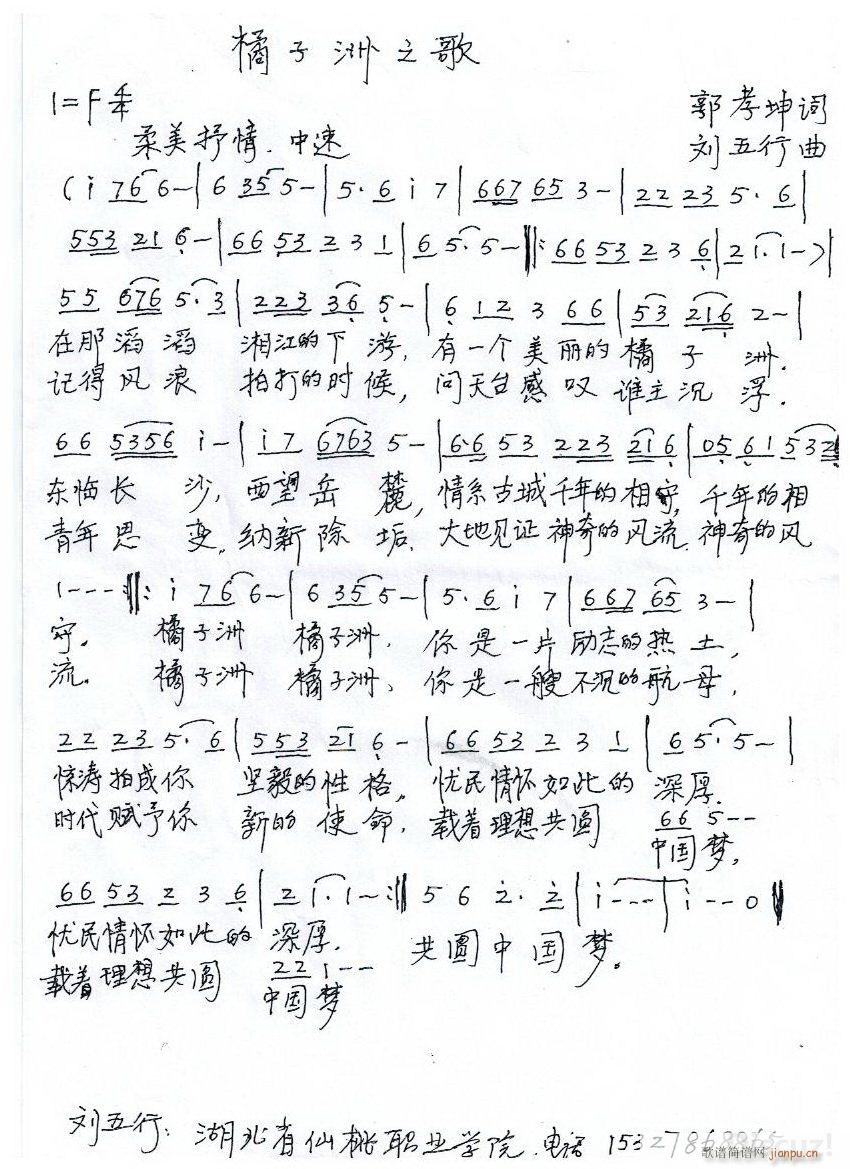 橘子洲之歌
1=F 4/4
郭孝坤词
柔美抒情.中速
刘五行曲
(i 766-|6 355-|5·6 i 7|667 65 3-|22 23 5·6|
553 21 6-|66 53 2 3 1|6 5·5-‖:66 53 2 3 6|2 1·1-)|
55 676 5·3|223 36 5-|6 12 3 66|53 216 2-|
在那滔滔 湘江的下游,有一个美丽的橘子洲.
记得风浪 拍打的时候,问天台感叹谁主沉浮.
66 5356 i-|i7 6763 5-|6·6 53 223 216|05 61 532
东临长沙,西望岳麓,情系古城千年的相守,千年的相
青年思变,纳新除垢.大地见证神奇的风流.神奇的风
1---:‖:i 766-|6 355-|5·6 i 7|667 65 3-|
守。 橘子洲 橘子洲.你是一片励志的热土,
流。 橘子洲 橘子洲、你是一艘不沉的航母,
22 23 5·6|553 21 6-|66 53 2 3 1|6 5·5-|
惊涛拍成你 坚毅的性格,忧民情怀如此的 深厚.
时代赋予你 新的使命.载着理想共圆 66 5--
中国梦,
66 53 2 3 6|2 1·1-:‖5 6 2·2|i---|i--0‖
忧民情怀如此的 深厚. 共圆中国梦。
载着理想共圆 22 1--
中国梦
刘五行:湖北省仙桃职业学院.电话
歌谱简谱网
jianpu.cn